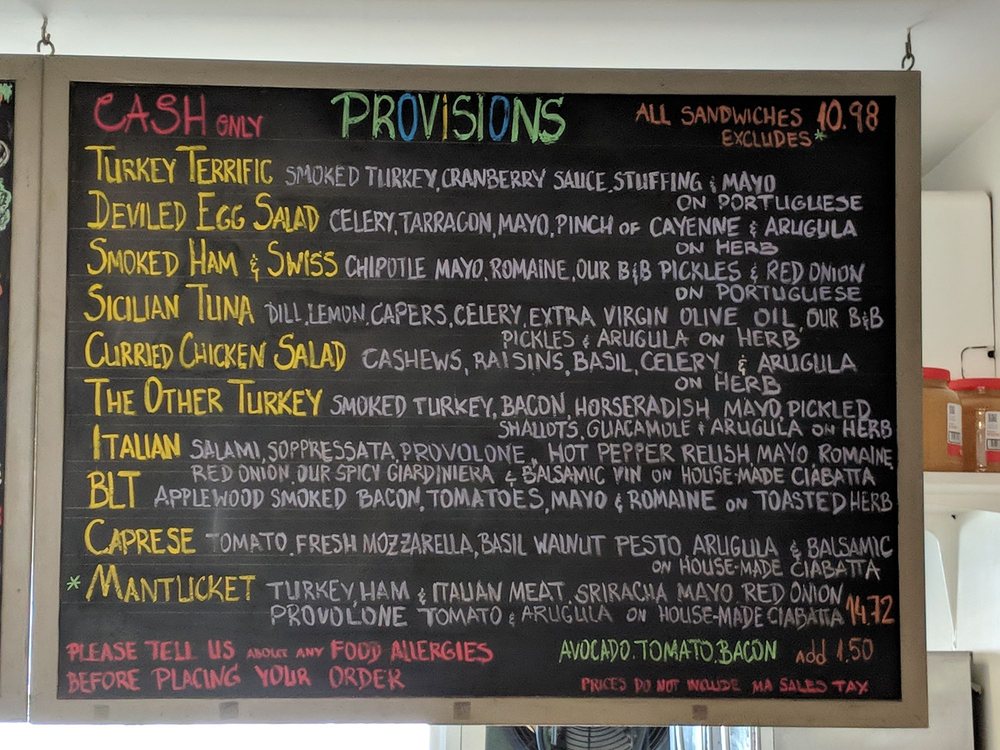 CASH ONLY PROVISIONS ALL SANDWICHES 10.98
EXCLUDES*
TURKEY TERRIFIC SMOKED TURKEY, CRANBERRY SAUCE, STUFFING & MAYO
ON PORTUGUESE
DEVILED EGG SALAD CELERY, TARRAGON, MAYO, PINCH OF CAYENNE & ARUGULA
ON HERB
SMOKED HAM & SWISS CHIPOTLE MAYO, ROMAINE, OUR B&B PICKLES & RED ONION
ON PORTUGUESE
SICILIAN TUNA DILL, LEMON, CAPERS, CELERY, EXTRA VIRGIN OLIVE OIL, OUR B&B
PICKLES & ARUGULA ON HERB
CURRIED CHICKEN SALAD CASHEWS, RAISINS, BASIL, CELERY & ARUGULA
ON HERB
THE OTHER TURKEY SMOKED TURKEY, BACON, HORSERADISH MAYO, PICKLED
SHALLOTS, GUACAMOLE & ARUGULA ON HERB
ITALIAN SALAMI, SOPPRESSATA, PROVOLONE, HOT PEPPER RELISH, MAYO ROMAINE,
RED ONION, OUR SPICY GIARDINIERA & BALSAMIC VIN ON HOUSE-MADE CIABATTA
BLT APPLEWOOD SMOKED BACON, TOMATOES, MAYO & ROMAINE ON TOASTED HERB
CAPRESE TOMATO, FRESH MOZZARELLA, BASIL WALNUT PESTO, ARUGULA & BALSAMIC
ON HOUSE-MADE CIABATTA
*MANTUCKET TURKEY, HAM & ITALIAN MEAT, SRIRACHA MAYO, RED ONION
PROVOLONE TOMATO & ARUGULA ON HOUSE-MADE CIABATTA 14.72
PLEASE TELL US ABOUT ANY FOOD ALLERGIES
BEFORE PLACING YOUR ORDER
AVOCADO, TOMATO, BACON add 1.50
PRICES DO NOT INCLUDE MA SALES TAX